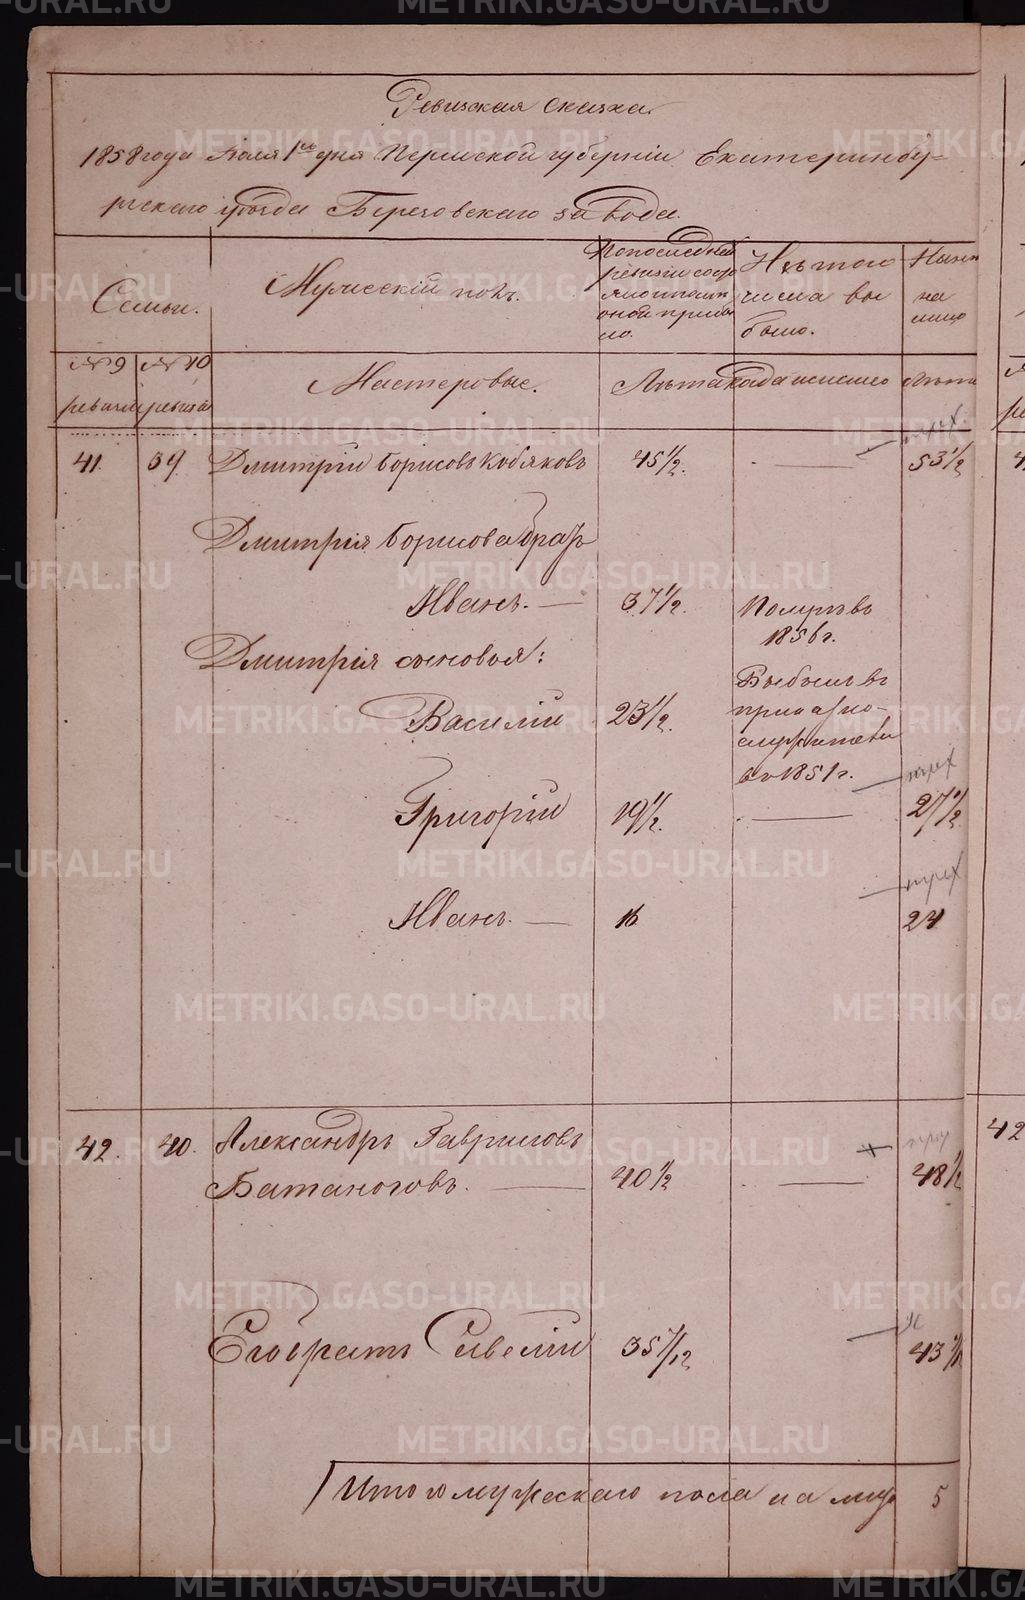 Ревизская сказка
1858 года Июля 1го дня Пермской губернiи Екатеринбу-
ргскаго уѣзда Березовскаго завода.
Семьи.
Мужескiй полъ.
По последней
ревизiи состо
яло и после
оной прибы
ло.
Изъ того
числа вы
было.
Нынѣ
на
лицо
№ 9
ревизiи
№ 10
ревизiи
Мастеровые.
Лѣта
Когда именно
Лѣта
41. 39. Дмитрiй Борисовъ Кобяковъ 45 1/2. — 53 1/2
Дмитрiя Борисова братъ
Иванъ. — 37 1/2. Помръ въ
1856 г.
Дмитрiя сыновья:
Василiй 23 1/2. Выбылъ въ
въ 1851 г.
Григорiй 19 1/2. — 27 1/2
Иванъ. — 16 24
42. 40. Александръ Гавриловъ
Батаноговъ. — 40 1/2 — 48 1/2
Его братъ Савелiй 35 7/12 43
Итого мужескаго пола на лицо 5
42
METRIKI.GASO-URAL.RU